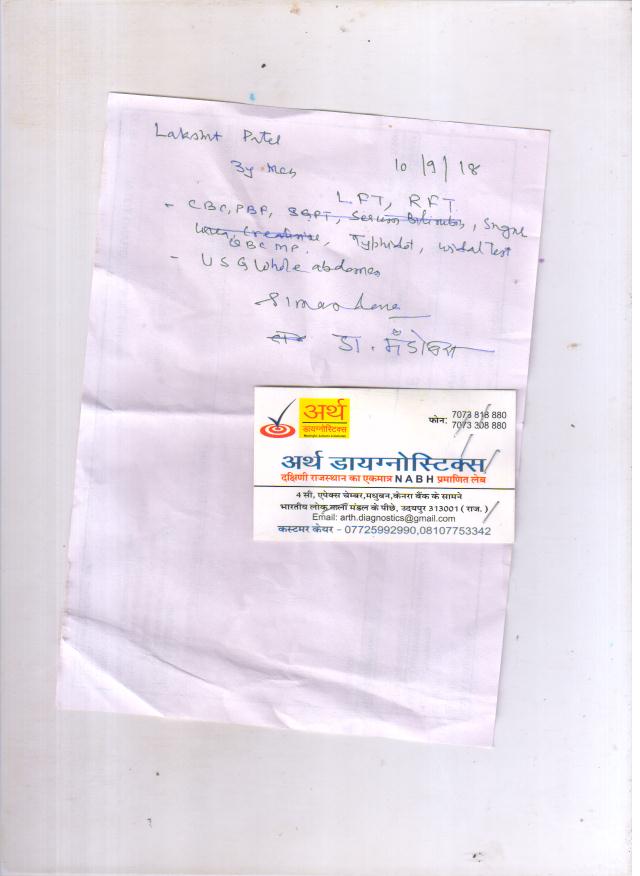 Lakshmi Patel
10/9/18
LFT, RFT
- CBC, PBF, SGPT, Serum Bilirubin,
Urea, Creatinine, Typhidot, Widal Test
QBC MP.
- USG Whole abdomen
डा.
अर्थ
डायग्नोस्टिक्स
फोन: 7073 818 880
7073 308 880
अर्थ डायग्नोस्टिक्स
दक्षिणी राजस्थान का एकमात्र NABH प्रमाणित लेब
4 सी, एपेक्स चेम्बर,मधुबन,केनरा बैंक के सामने
भारतीय लोक कला मंडल के पीछे, उदयपुर 313001 ( राज. )
Email: arth.diagnostics@gmail.com
कस्टमर केयर - 07725992990,08107753342